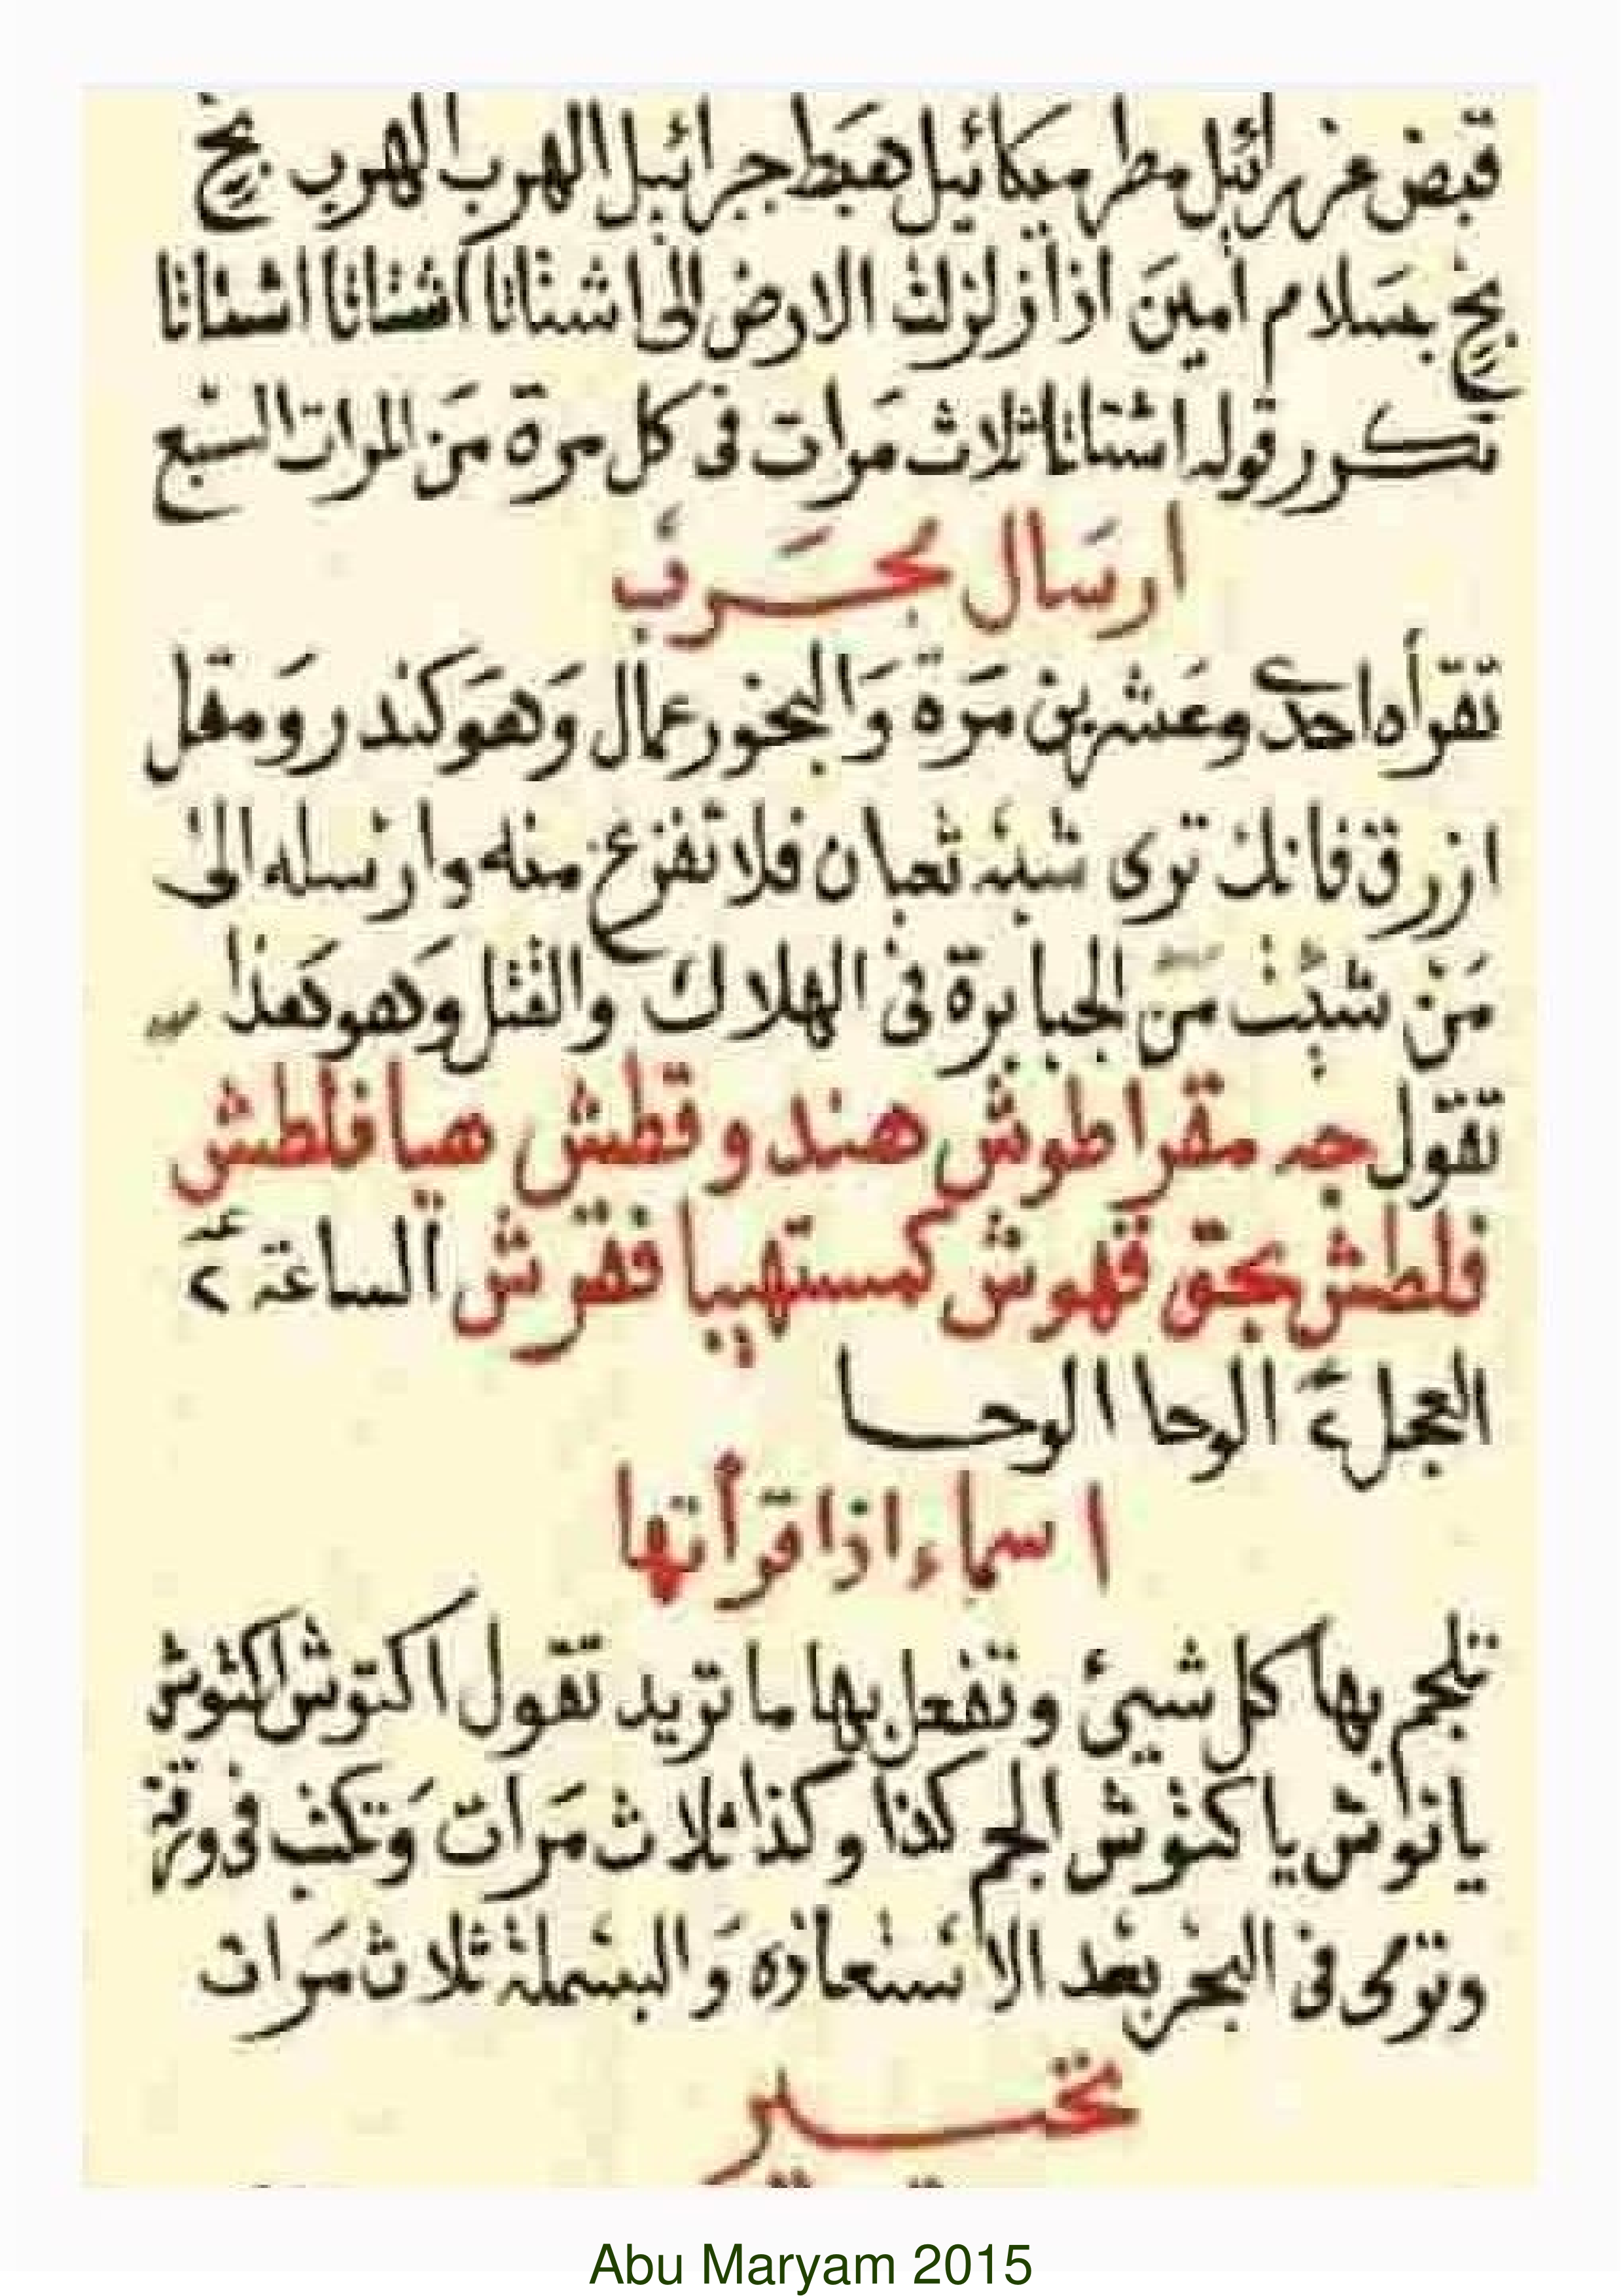 قبض عزرائيل مطر ميكائيل هبط جبرائيل الهرب الهرب بخ
بخ بسلام امين اذا زلزلت الارض الى اشتاتا اشتاتا اشتاتا
تكرر قوله اشتاتا ثلاث مرات فى كل مرة من المرات السبع
ارسال بحرف
تقرأه احدى وعشرين مرة والبخور عمال وهو كندر ومقل
ازرق فانك ترى شبه ثعبان فلا تفزع منه وارسله الى
من شئت من الجبابرة فى الهلاك والقتل وهو هذا
تقول جه مقراطوش هند وقطش هيا فلطش
فلطش بحق فهوش كمستهييا ففرش الساعة ٢
العجل ٢ الوحا الوحا
اسماء اذا قرأتها
تلجم بها كل شيئ وتفعل بها ما تريد تقول اكتوش اكثوش
يا نوش يا كثوش الجم كذا وكذا ثلاث مرات وتكتب فى ورقة
وترمى فى البحر بعد الاستعاذه والبسملة ثلاث مرات
Abu Maryam 2015